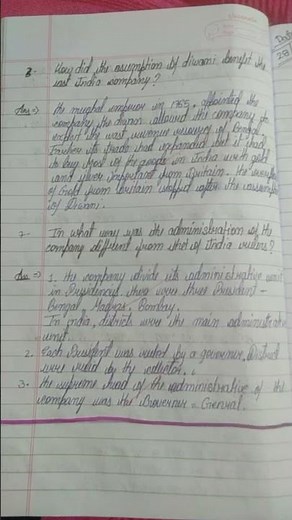 8- How did the assumption of diwani benefit the
east India company?
Ans=> The mughal emperor in 1765, appointed the
company the diwan allowed the company to
exploit the vast revenue resources of Bengal.
trade had expanded but it had
to buy most of the goods in India with gold
and silver imported from Britain. The
of Gold from Britain stopped after the assumption
of Diwani.
7- In what way was the administration of the
company different from that of India rulers?
Ans=> 1. the company divide its administrative
in Presidencies there were three President -
Bengal, Madras, Bombay.
In India, districts were the main administrative
unit.
2. Each President was ruled by a governer, District
were ruled by the collector.
3. the supreme head of the administrative of the
company was the Governer - General.